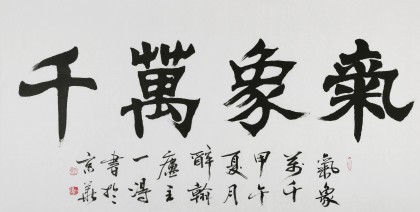 氣象萬千
氣象
萬千
甲午
夏月
醉翰
廬主
一得
書於
京華